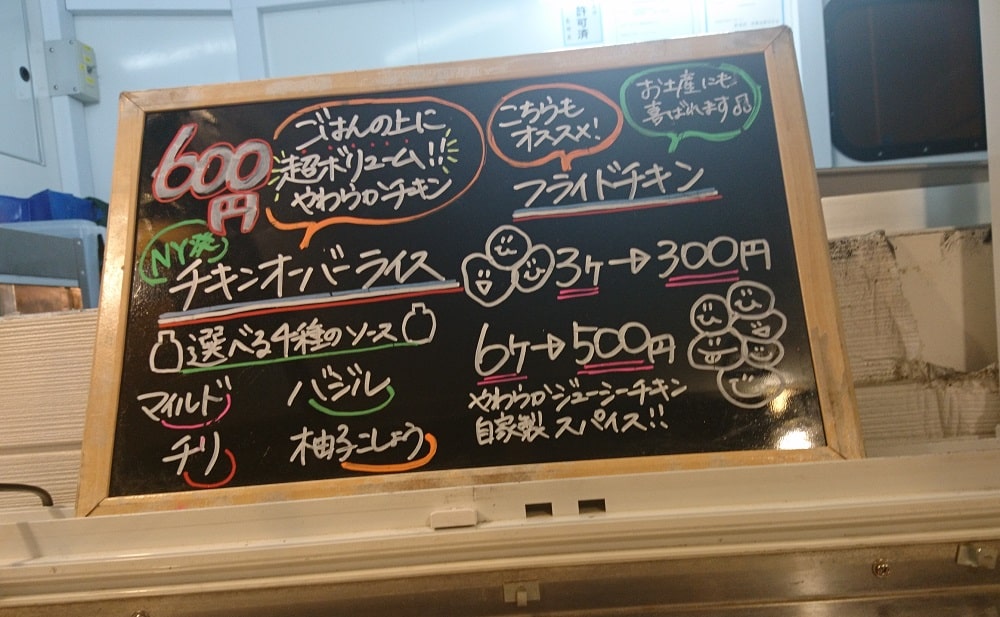 許可済
600
円
ごはんの上に
超ボリューム!!
やわらかチキン
NY発
チキンオーバーライス
選べる4種のソース
マイルド
バジル
チリ
柚子こしょう
こちらも
オススメ!
お土産にも
喜ばれます
フライドチキン
3ケ→300円
6ケ→500円
やわらかジューシーチキン
自家製スパイス!!